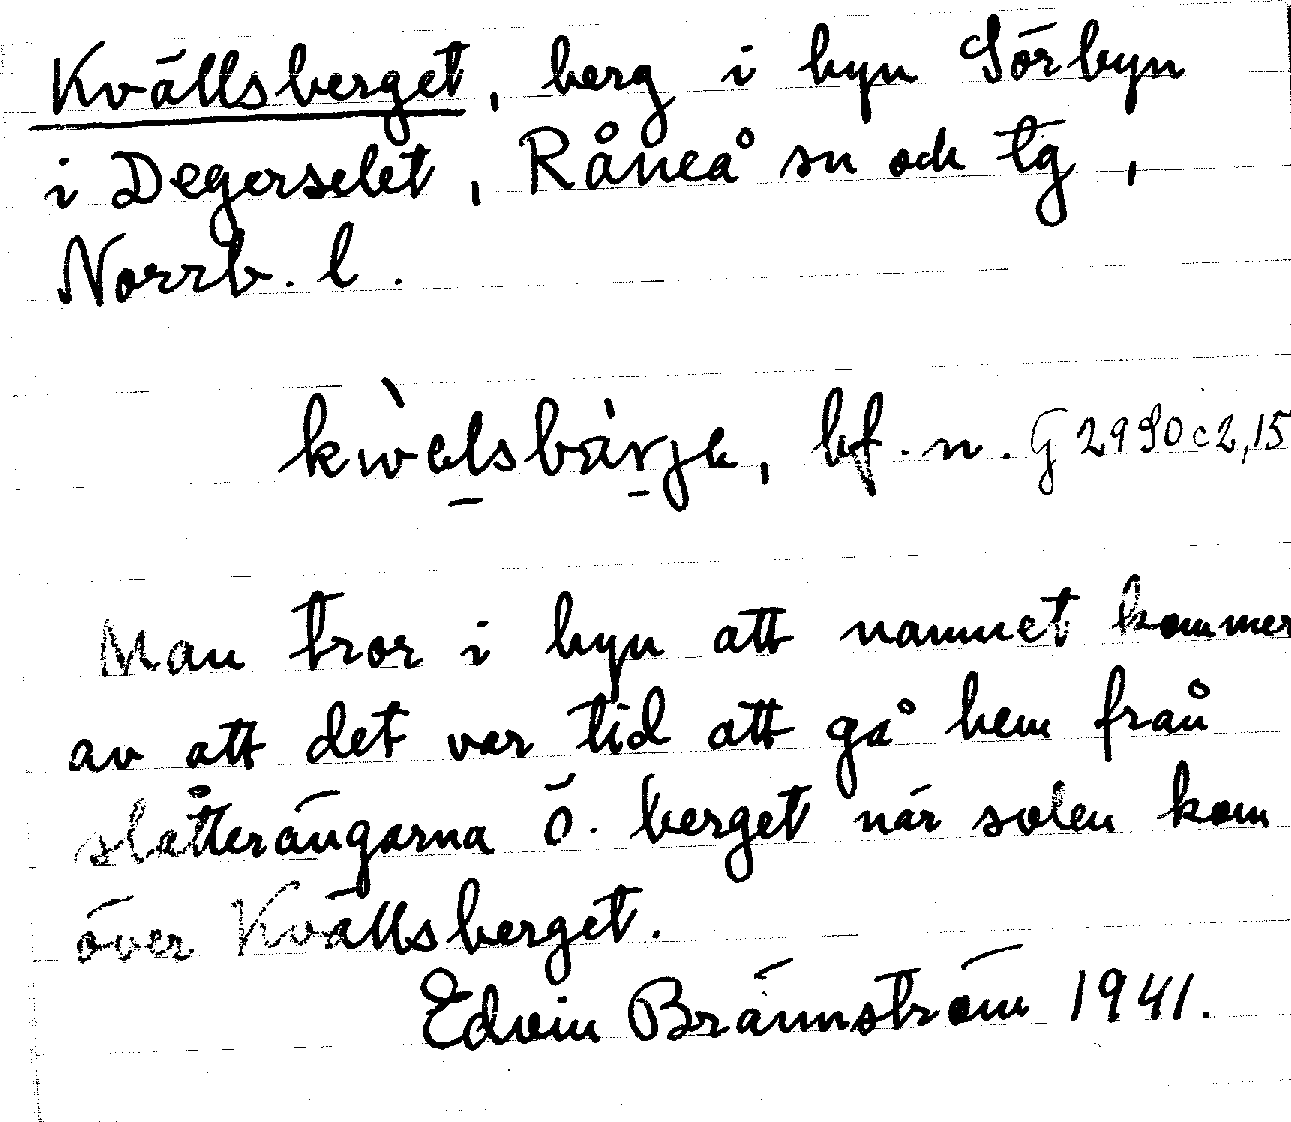 Kvällsberget, berg i byn Sörbyn
i Degerselet, Råneå sn och tg,
Norrb. l.
bf. n. G 2990 c 2,15
Man tror i byn att namnet kommer
av att det var tid att gå hem från
slåtterängarna Ö. berget när solen kom
över Kvällsberget.
Edvin Brännström 1941.